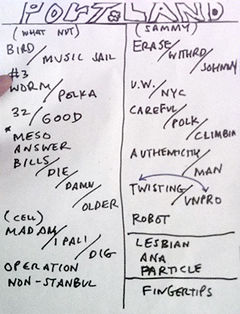 PORTLAND
(WHAT NOT)
BIRD/
MUSIC JAIL
#3
WORM/
POLKA
32/
GOOD
* MESO
ANSWER
BILLS/
DIE/
DAMN/
OLDER
(CELL)
MADAM/
I PALI/
DIG
OPERATION
NON-STANBUL
(SAMMY)
ERASE/
WITHRD/
JOHNNY
V.W./
NYC
CAREFUL/
POLK/
CLIMBIN
AUTHENTICITY/
MAN
TWISTING/
UNPRO
ROBOT
LESBIAN
ANA
PARTICLE
FINGERTIPS